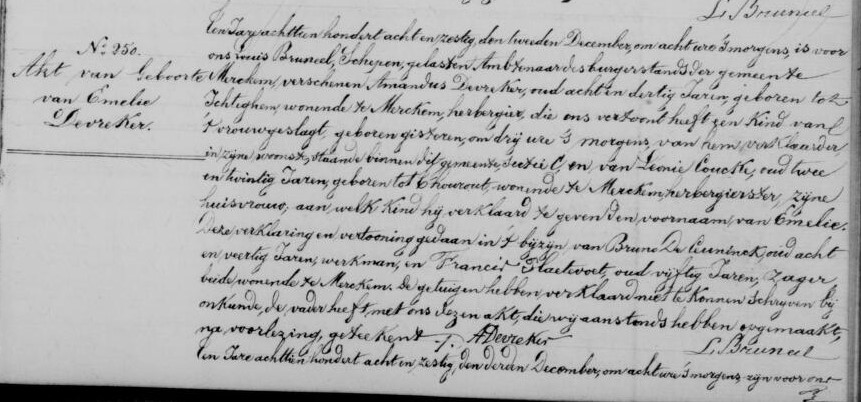 L. Bruneel
Nº 250.
Akt van Geboorte
van Emelie
Devreker.
Een Jare achttien hondert acht en zestig, den tweeden December, om acht ure 's morgens, is voor
ons Louis Bruneel, Schepen, gelasten Ambtenaar des burgerstands der gemeente
Merckem, verschenen Amandus Devreker, oud acht en dertig Jaren, geboren tot
Ichteghem, wonende te Merckem, herbergier, die ons vertoont heeft een Kind van
't vrouwgeslagt, geboren gisteren, om drij ure 's morgens, van hem verklaarder,
in zijne woonste, staande binnen dit gemeente, Sectie C, en van Leonie Coucke, oud twee
en twintig Jaren, geboren tot Thourout, wonende te Merckem, herbergierster, zijne
huisvrouw, aan welk Kind hij verklaard te geven den voornaam van Emelie.
Deze verklaring en vertooning gedaan in 't bijzijn van Bruno De Ceuninck, oud acht
en veertig Jaren, werkman, en Francis Plaetevoet, oud vijftig Jaren, zager
beide wonende te Merckem. De getuigen hebben verklaard niet te Konnen schrijven bij
onkunde, de vader heeft met ons dezen akt, die wij aanstonds hebben opgemaakt,
na voorlezing, geteekent /. ADevreker
L. Bruneel
Een Jare achttien hondert acht en zestig, den derden December, om acht ure 's morgens zijn voor ons